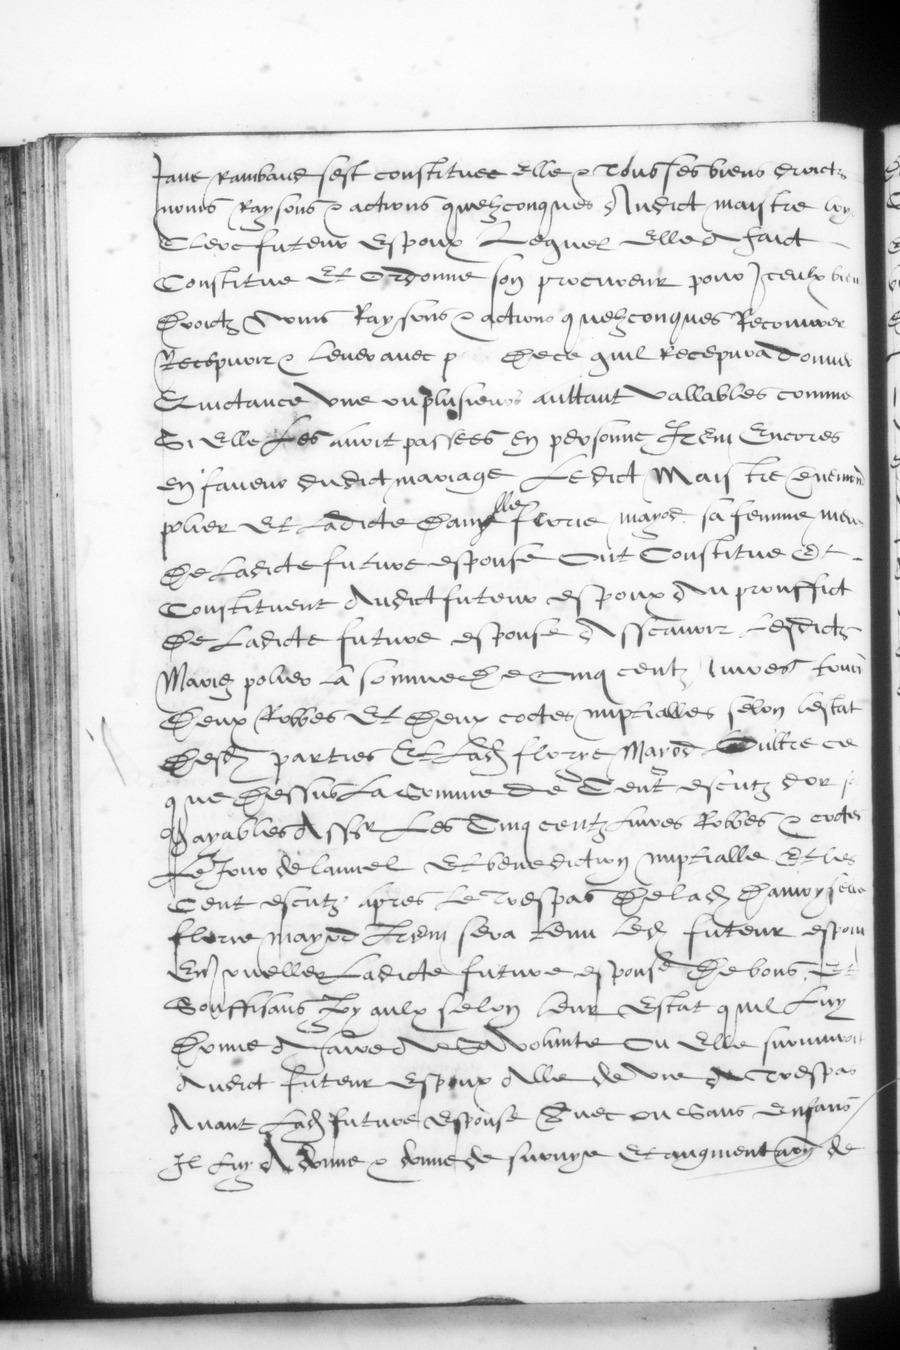 Jane Rambaud sest constituee elle & tous ses biens droictz
noms Raysons & actions quelzconques Audict maistre
Clerc futeur espoux Lequel elle A faict
Constitue Et Ordonne son procureur pour Iceulx bien
droictz Noms Raysons & actions quelzconques Recouurer
Recepuoir & leuer auec p de ce quil Recepura donner
Quictance vne ou plusieurs aultant vallables comme
Si elle Les auoit passees en personne Item Encores
en faueur dudict mariage Ledict Maistre
polier Et Ladicte damlle florie mayod sa femme mere
de Ladicte future espouse Ont Constitue Et
Constituent Audict futeur espoux Au prouffict
de Ladicte future espouse Asscauoir Lesdictz
Mariez polier La somme de Cinq centz liures tourn
deux Robbes Et deux cottes nuptialles selon lestat
desd parties Et Lad florie Mayod oultre ce
que dessus La Somme de Cent escutz dor
payables Asscr Les Cinq centz liures Robbes & cottes
Le Jour de lannel Et benediction nuptialle Et les
Cent escutz apres Le Trespas de lad damoyselle
florie mayod Item sera tenu led futeur espoux
En Ladicte future espouse de bons Et
Souffisans Joyaulx selon leur Estat quil Luy
donne A faire de Sa volunte Ou Elle suruiuroit
Audict futeur espoux Alle de vie A Trespas
Auant Lad future espouse Auec ou Sans Enfans
Il Luy A donne & donne de suruye Et augmentaon de